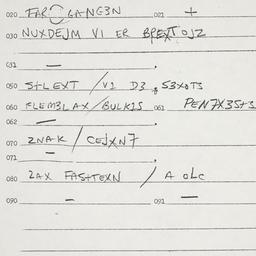 020 FAR GANG3N 021 +
030 NUXDEJM VI ER BPEXT OJZ
031 —
050 S+LEXT / V1 D3 . S3XOT3
060 FLEM3LAX / BULK1S 061 PEN7X35+3
062 —
070 ZNAK / CEJXN7
071 —
080 ZAX FAS+TEXN / A OLC
090 — 091 —